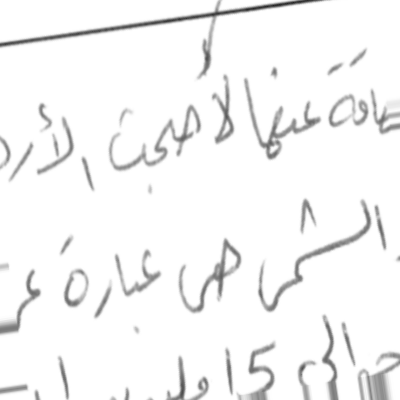 طاقة عنها لأصبحت الأر
الشمس هي عبارة عن
والي 15 مليون